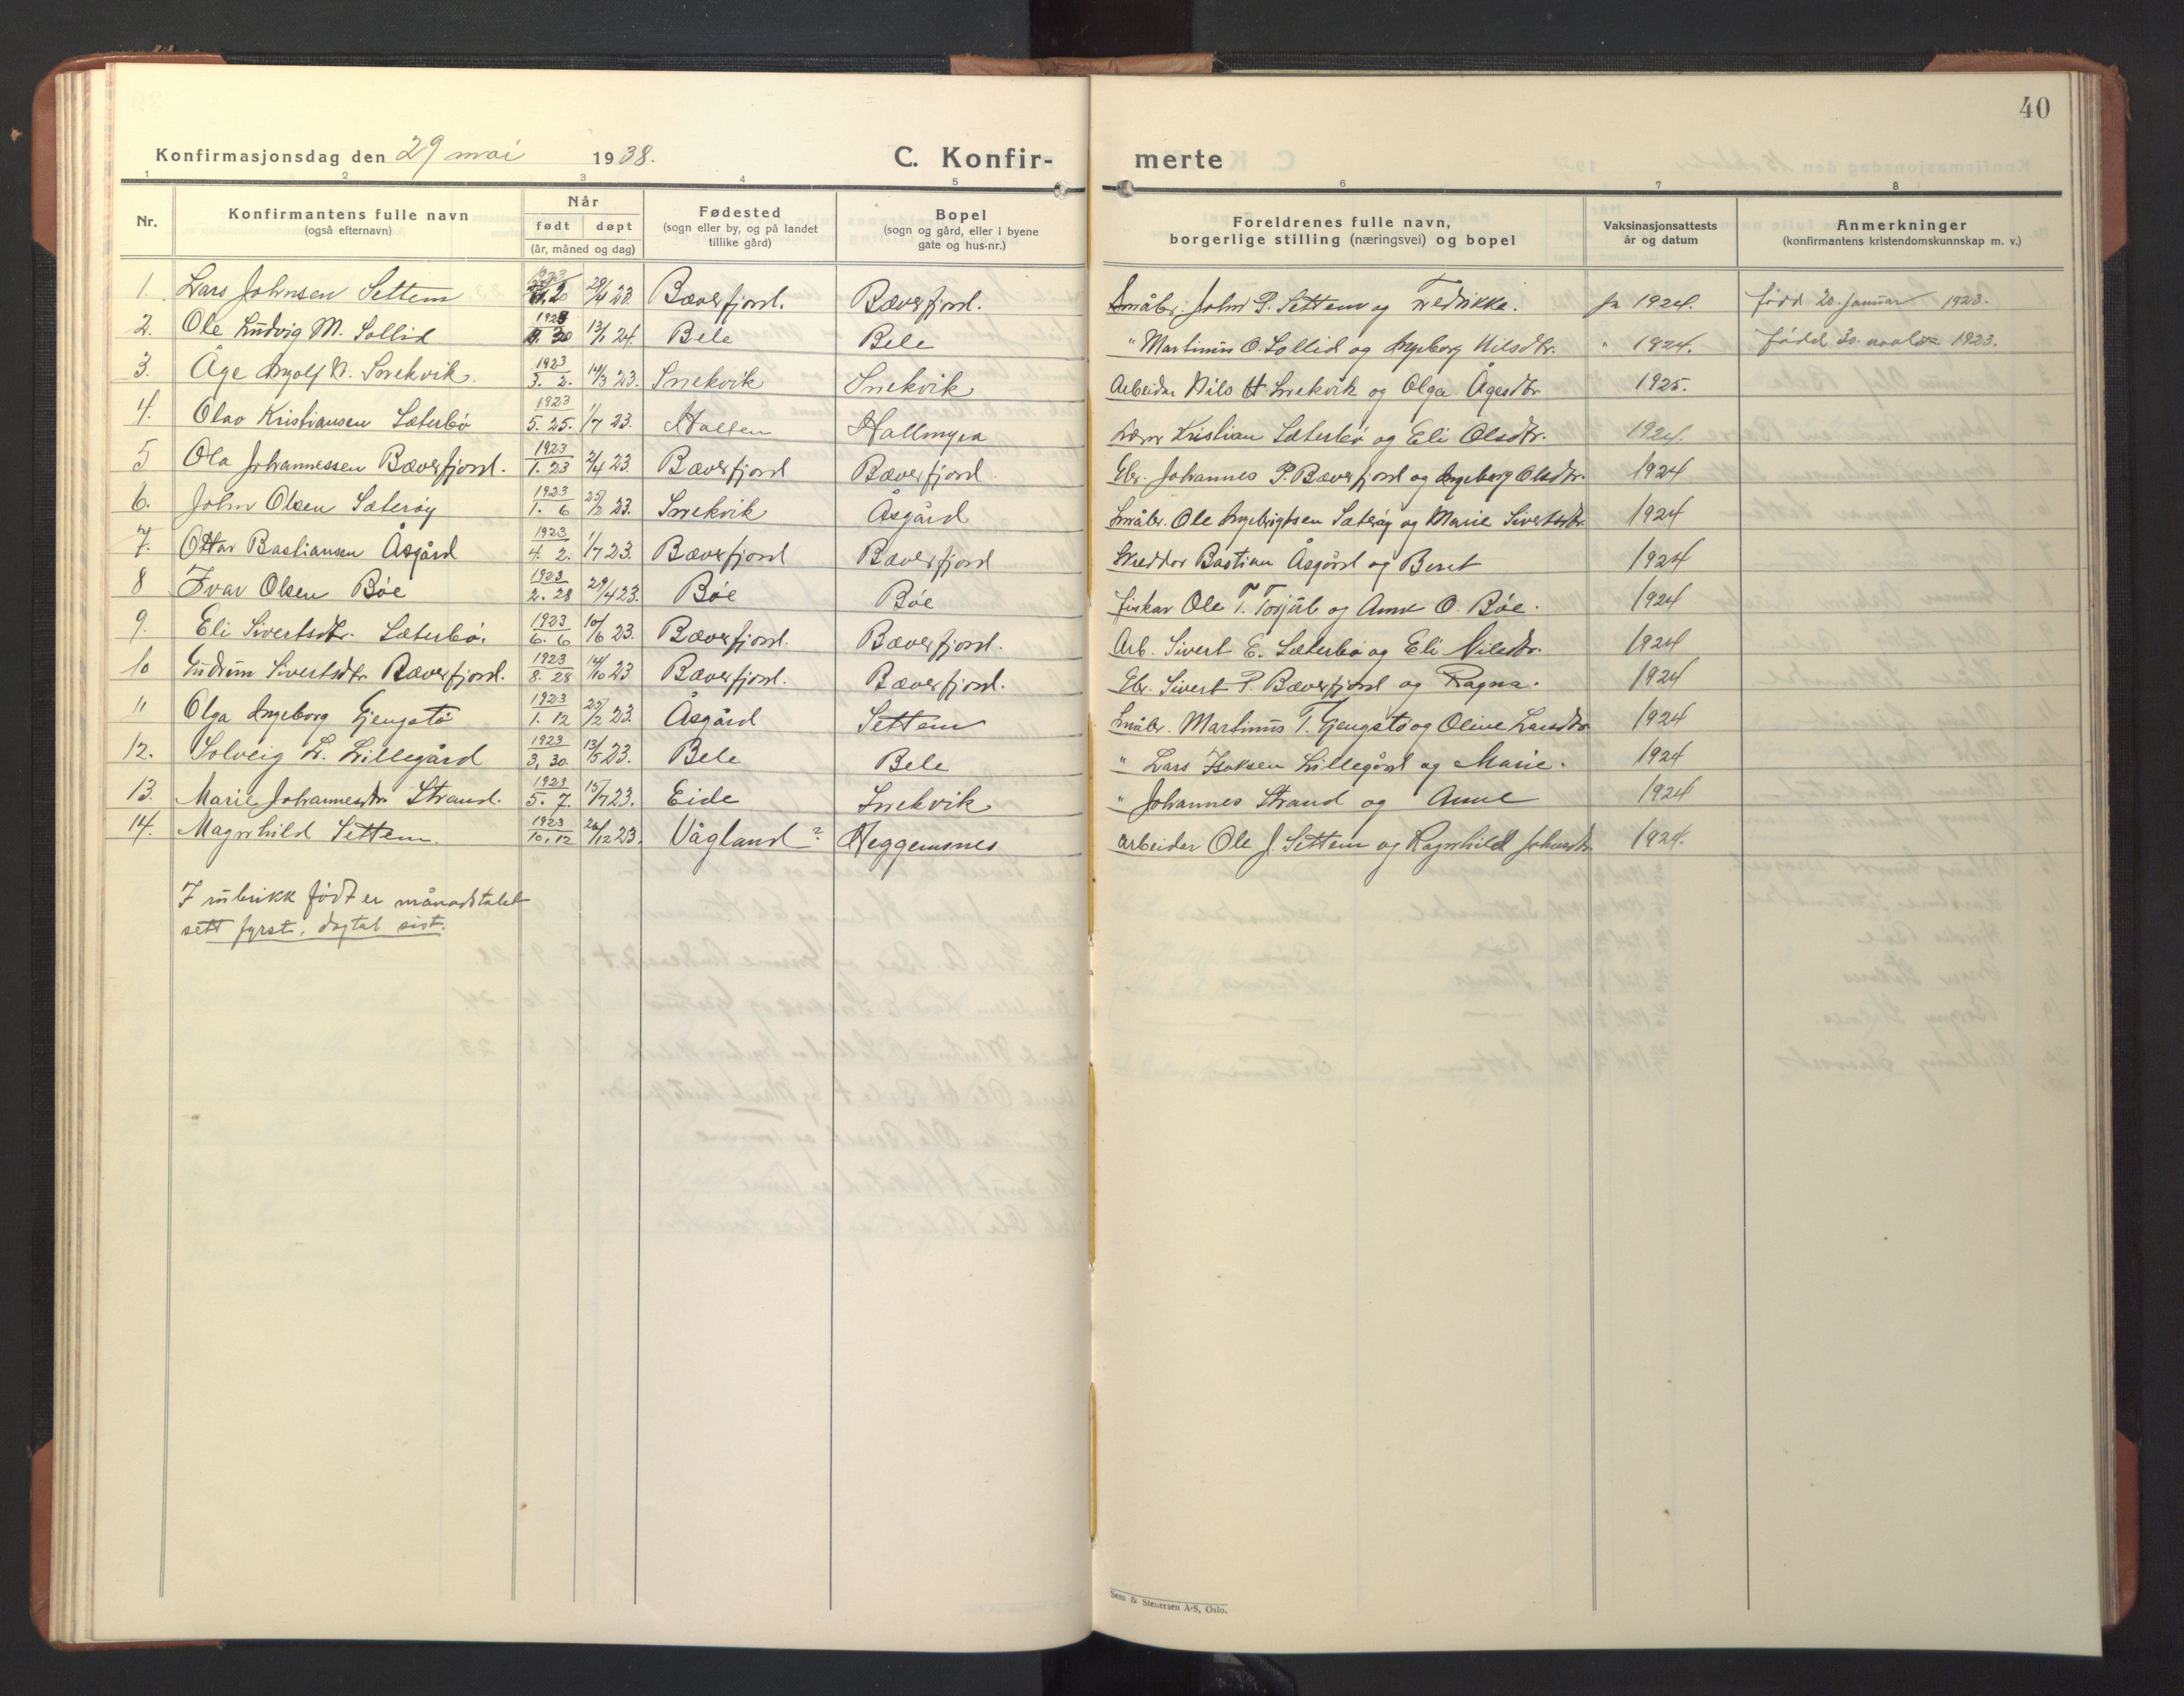 40
Konfirmasjonsdag den 29 mai 1938. C. Konfir- merte
1 2 3 4 5 6 7 8
Nr. Konfirmantens fulle navn (også efternavn) Når født døpt (år, måned og dag) Fødested (sogn eller by, og på landet tillike gård) Bopel (sogn og gård, eller i byene gate og hus-nr.) Foreldrenes fulle navn, borgerlige stilling (næringsvei) og bopel Vaksinasjonsattests år og datum Anmerkninger (konfirmantens kristendomskunnskap m. v.)
1. Lars Johnsen Settem 1923 29/4 23. Bæverfjord. Bæverfjord. Småbr. John P. Settem og Fredrikke. 1924. född 20. januar 1923.
2. Ole Ludvig M. Sollid 1923 13/1 24. Bele Bele " Martinus O. Sollid og Ingeborg Nilsdtr. " 1924. född 30. 1923.
3. Åge Ingolf N. Snekvik. 1923 3. 2. 14/3 23. Snekvik Snekvik Arbeidar Nils H Snekvik og Olga Ågesdtr 1925.
4. Olav Kristiansen Sæterbø 1923 5. 25. 1/7 23. Hallen Hallmyra Kristian Sæterbø og Eli Olsdtr. 1924.
5 Ola Johannessen Bæverfjord. 1923 1. 23 2/4 23. Bæverfjord Bæverfjord. Gbr. Johannes P. Bæverfjord og Ingeborg Olsdtr. 1924
6. John Olsen Sæterøy 1923 1. 6 25/2 23. Snekvik Åsgård Småbr. Ole Ingebrigtsen Sæterøy og Marie Sivertsdtr. 1924
7. Ottar Bastiansen Åsgård 1923 4. 2. 1/7 23. Bæverfjord Bæverfjord Skreddar Bastian Åsgård og Beret 1924
8 Ivar Olsen Bøe 1923 2. 28 29/4 23. Bøe Bøe fiskar Ole T. Torjul og Anne O. Bøe. 1924
9. Eli Sivertsdtr. Sæterbø. 1923 6. 6 10/6 23. Bæverfjord. Bæverfjord. Arb. Sivert E. Sæterbø og Eli Nilsdtr. 1924
10 Gudrun Sivertsdtr Bæverfjord. 1923 8. 28 14/10 23 Bæverfjord. Bæverfjord. Gbr. Sivert P. Bæverfjord og Ragna. 1924
11 Olga Ingeborg Gjengstø 1923 1. 12 25/2 23. Åsgård Settem Småbr. Martinus T. Gjengstø og Oline Larsdtr 1924
12. Solveig L. Lillegård 1923 3. 30 13/5 23. Bele Bele " Lars Isaksen Lillegård og Marie. 1924
13. Marie Johannesdtr Strand. 1923 5. 7. 15/7 23. Eide Snekvik " Johannes Strand og Anne 1924
14. Magnhild Settem. 1923 10. 12 26/12 23. Vågland ? Heggemsnes arbeidar Ole J. Settem og Ragnhild Johnsdtr 1924.
I rubrikk födt er månadstalet
sett fyrst, dagtal sist.
Sem & Stenersen A/S, Oslo.